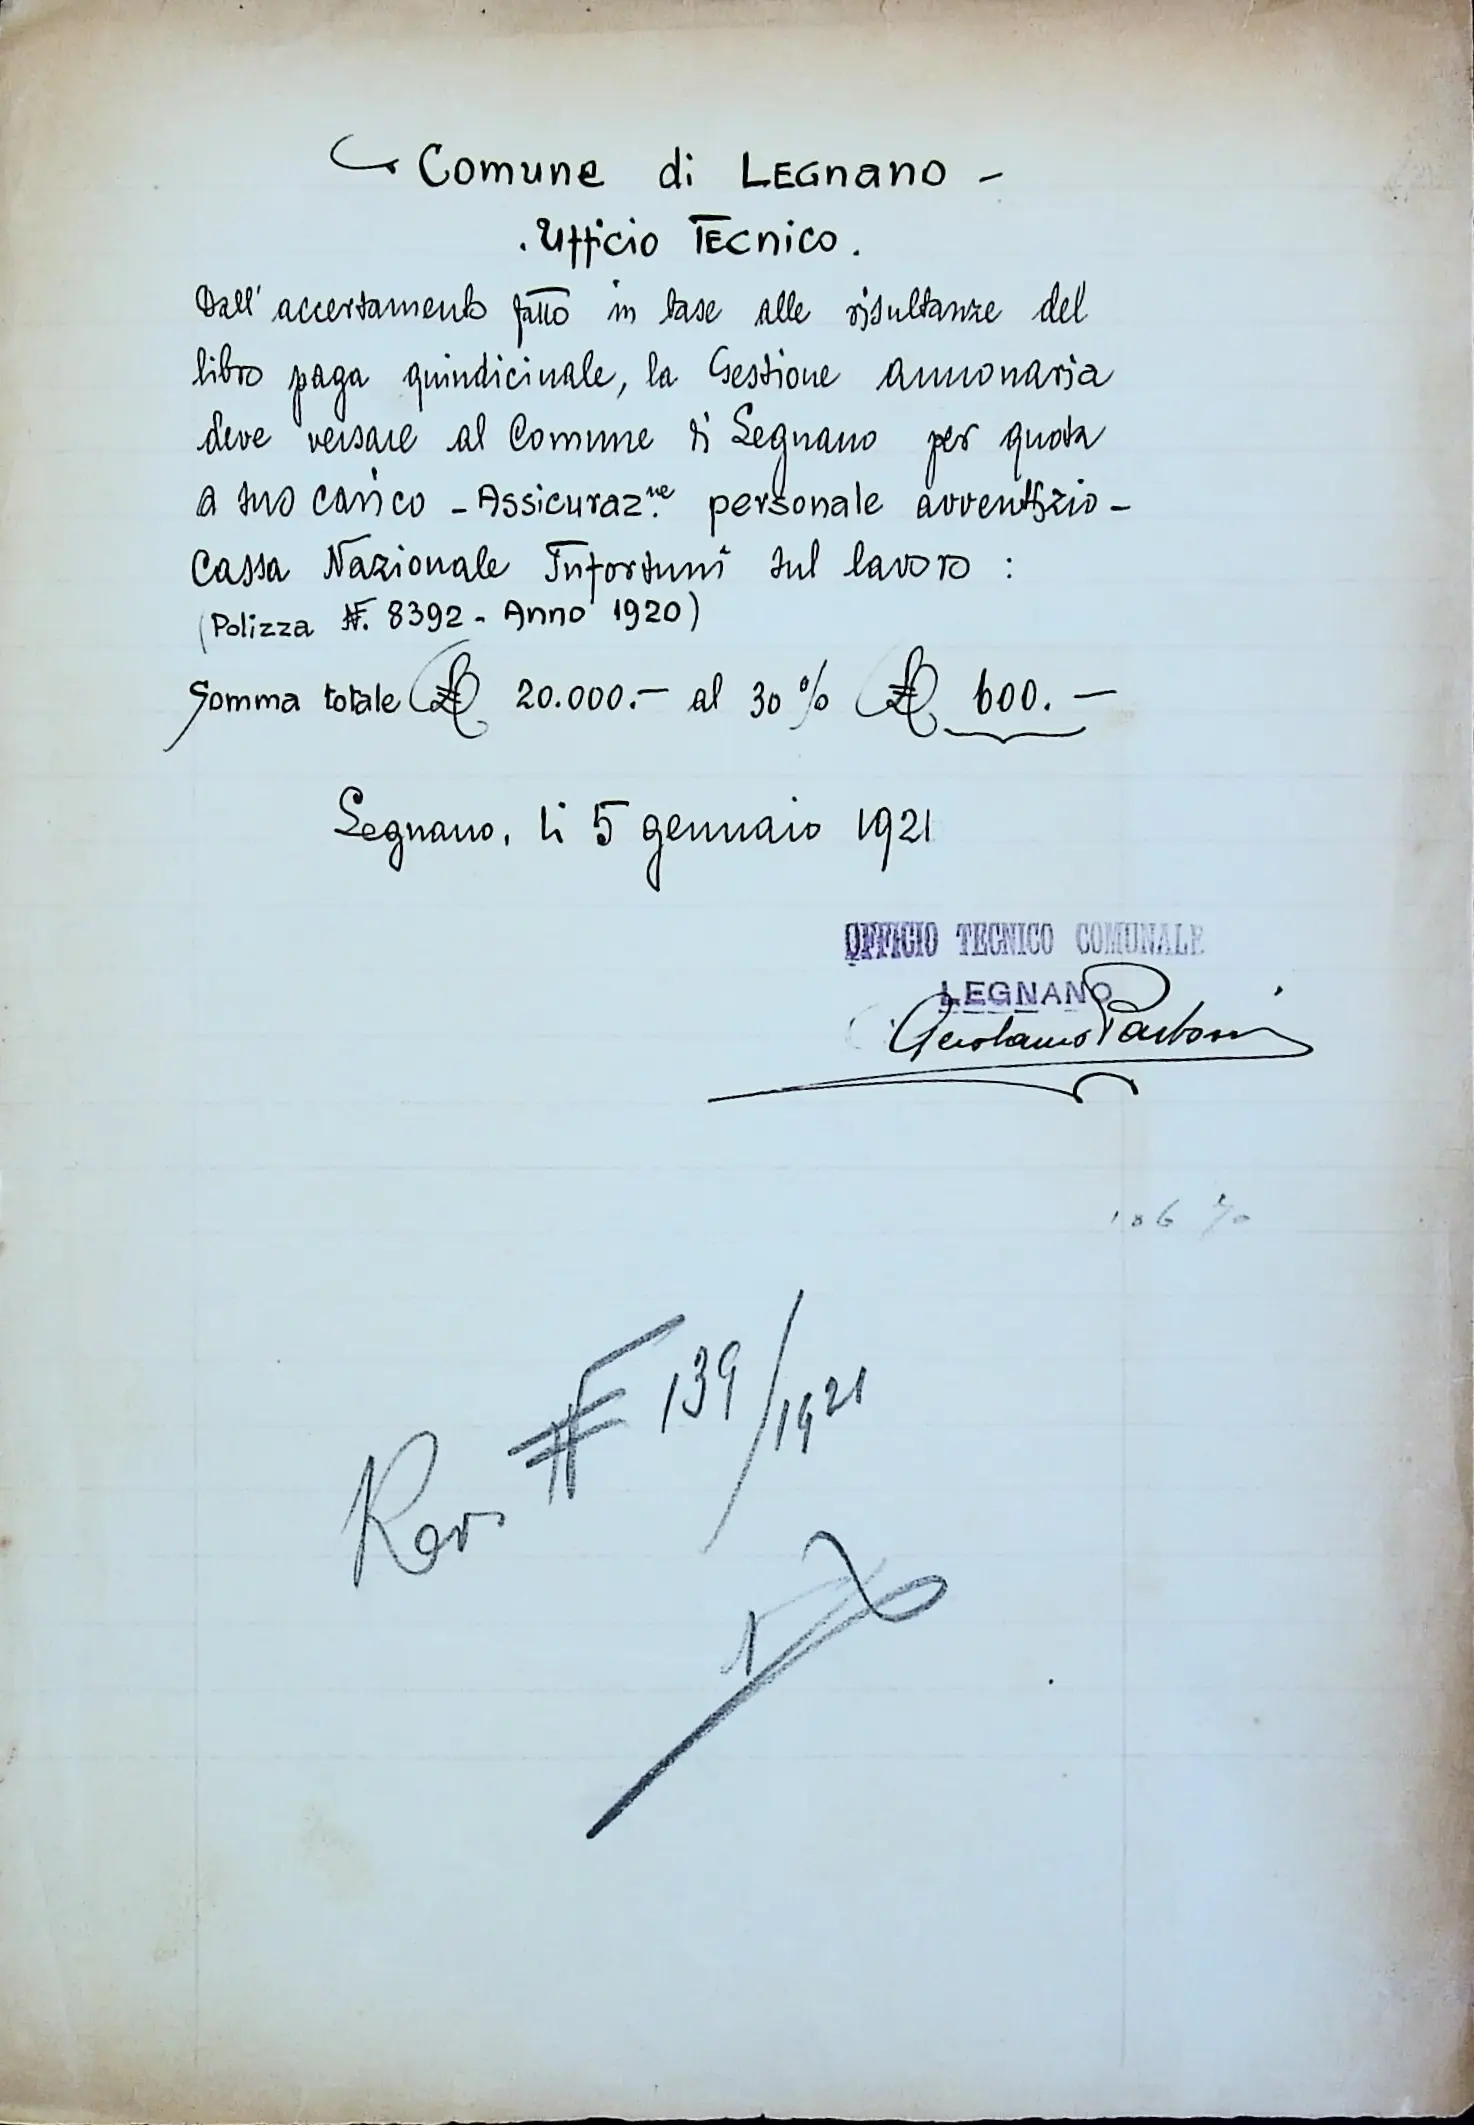 Comune di Legnano -
. Ufficio Tecnico .
Dall' accertamento fatto in base alle risultanze del
libro paga quindicinale, la Gestione annonaria
deve versare al Comune di Legnano per quota
a suo carico - Assicuraz.ne personale avventizio -
Cassa Nazionale Infortuni sul lavoro :
(Polizza N. 8392 - Anno 1920)
Somma totale £ 20.000.- al 30 % £ 600.-
Legnano, li 5 gennaio 1921
UFFICIO TECNICO COMUNALE
LEGNANO
Gerolamo
Rev. N 139/1921